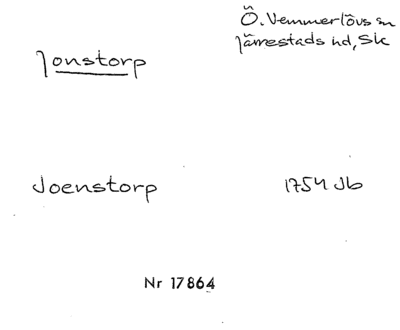 Jonstorp
Ö. Vemmerlövs sn
Järrestads hd, Sk
Joenstorp
1754 Jb
Nr 17864